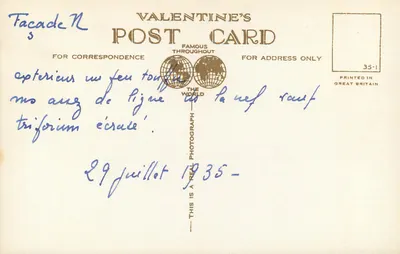 Façade N
VALENTINE'S
POST CARD
FAMOUS
THROUGHOUT
THE
WORLD
FOR CORRESPONDENCE
FOR ADDRESS ONLY
35-1
PRINTED IN
GREAT BRITAIN
extérieur un peu
mo assez de ligne de la nef sauf
triforium écrasé.
29 juillet 1935 -
THIS IS A REAL PHOTOGRAPH